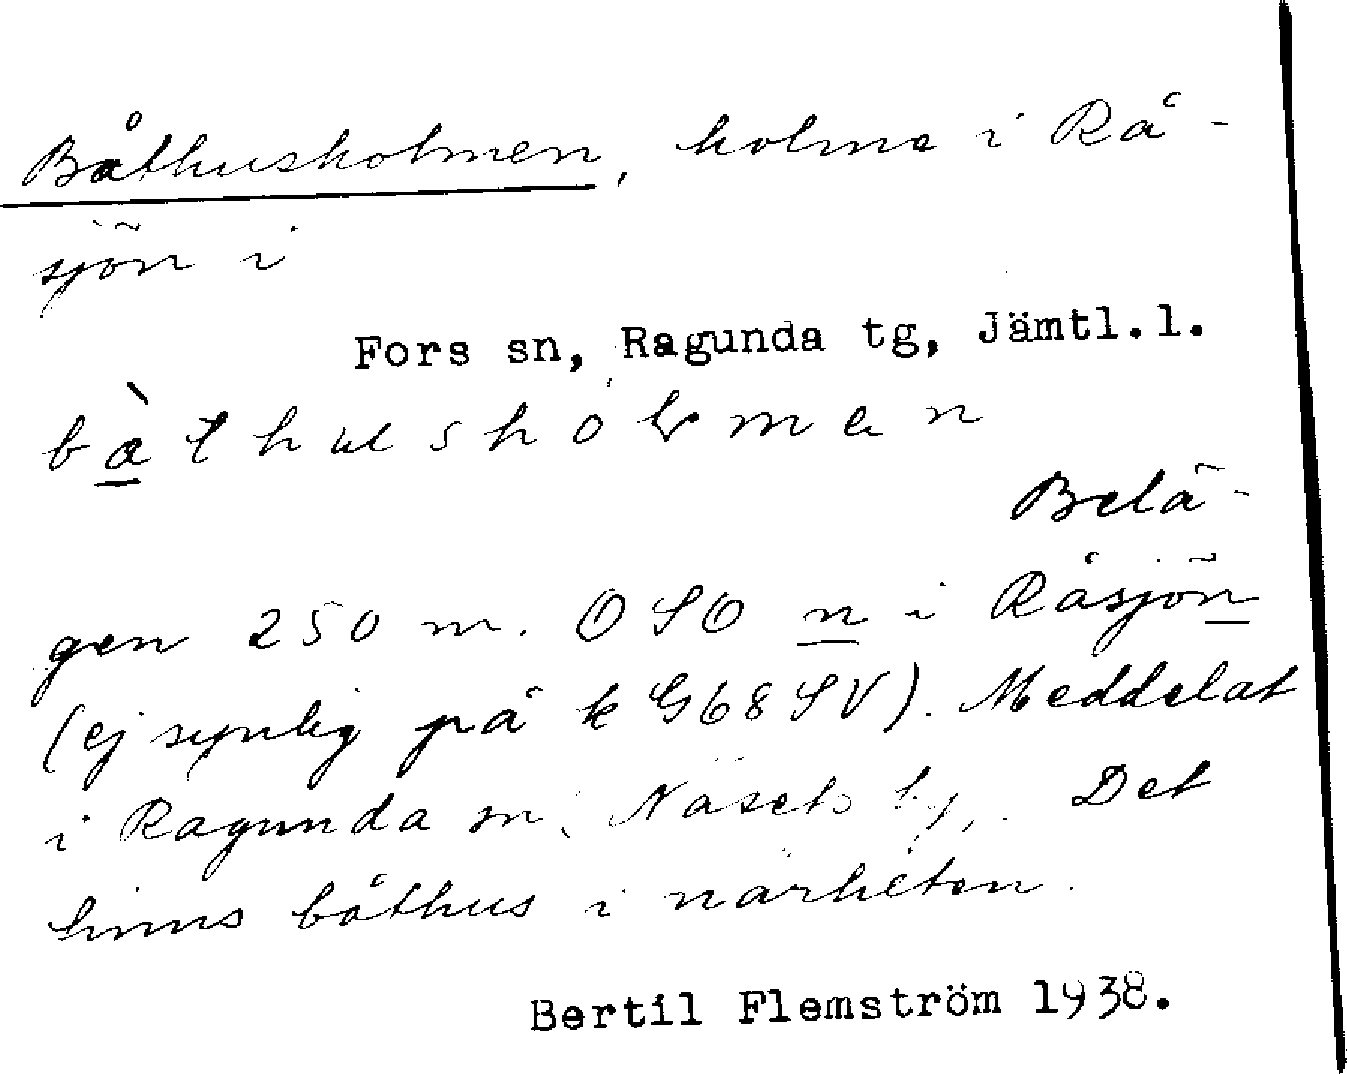 Båthusholmen, holme i Rå-
sjön i
Fors sn, Ragunda tg, Jämtl.l.
bàthusholmen
Belä-
gen 250 m. OSO n i Råsjön
(ej synlig på k G68SV). Meddelat
i Ragunda sn, Näsets by. Det
finns båthus i närheten.
Bertil Flemström 1938.